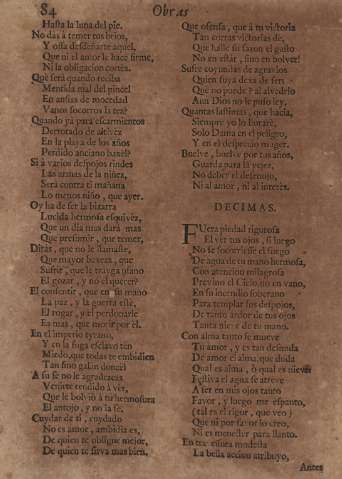 84 Obras
Hasta la luna del pie.
No das à temer tus brios,
Y ossa desdeñarte aquel,
Que ni el amor le hace firme,
Ni la obligacion cortès.
Què serà quando reciba
Mentida mal del pincel
En ansias de mocedad
Vanos socorros la tez?
Quando yà para escarmientos
Derrotado de altivez
En la playa de los años
Perdido anciano baxèl?
Si à varios despojos rindes
Las armas de la niñez,
Serà contra tì mañana
Lo menos niño, que ayer.
Oy ha de ser la bizarra
Lucida hermosa esquivèz,
Que un dia mas darà mas
Que presumir, que temer,
Diràs, que no le llamaste,
Que mayor baxeza, que
Sufrir, que le trayga ufano
El gozar, y no el querer?
El consentir, que en su mano
La paz, y la guerra estè,
El rogar, y el perdonarle
Es mas, que morir por èl.
En el imperio tyrano,
Y en la fuga esclavo ten
Miedo, que todas te embidien
Tan fino galàn doncel
A su fe no le agradezcas
Venirte rendido à vèr,
Que le bolviò à tu hermosura
El antojo, y no la fe.
Cuydar de tì, cuydado
No es amor, ambidia es,
De quien te obligue mejor,
De quien te sirva mas bien,
Que ofensa, que à tu victoria
Tan cortas victorias dè,
Que halle su sazon el gusto
No en estàr, sino en bolver!
Sufre coyundas de agravios
Quien suya dexa de ser:
Què no puede? al alvedrio
Aun Dios no le puso ley,
Quantas lastimas, que hacia,
Siempre yo lo lloraré,
Solo Dama en el peligro,
Y en el desprecio muger.
Buelve, buelve por tus años,
Guarda para la vejez,
No deber el desenojo,
Ni al amor, ni al interès.
DECIMAS.
FUera piedad rigurosa
El vèr tus ojos, si luego
No se socorriesse el fuego
De agua de tu mano hermosa,
Con atencion milagrosa
Previno el Cielo, no en vano,
En su incendio soberano
Para templar sus despojos,
De tanto ardor de tus ojos
Tanta nieve de tu mano.
Con alma tanto se mueve
Tu amor, y es tan detenida
De amor el alma, que duda
Qual es alma, ò qual es nieve?
Festiva el agua se atreve
A ser en mis ojos tanto
Favor, y luego me espanto,
(tal es el rigor, que veo)
Que ni por favor lo creo,
Ni es menester para llanto.
En travessura modesta
La bella accion atribuyo,
Antes